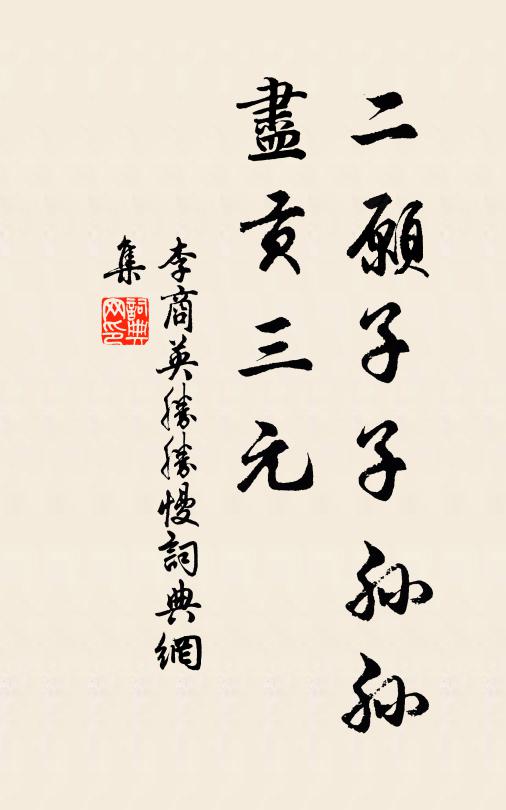 二願子子孫孫
盡貢三元
李商英勝勝慢詞典網
集
詞典
网印